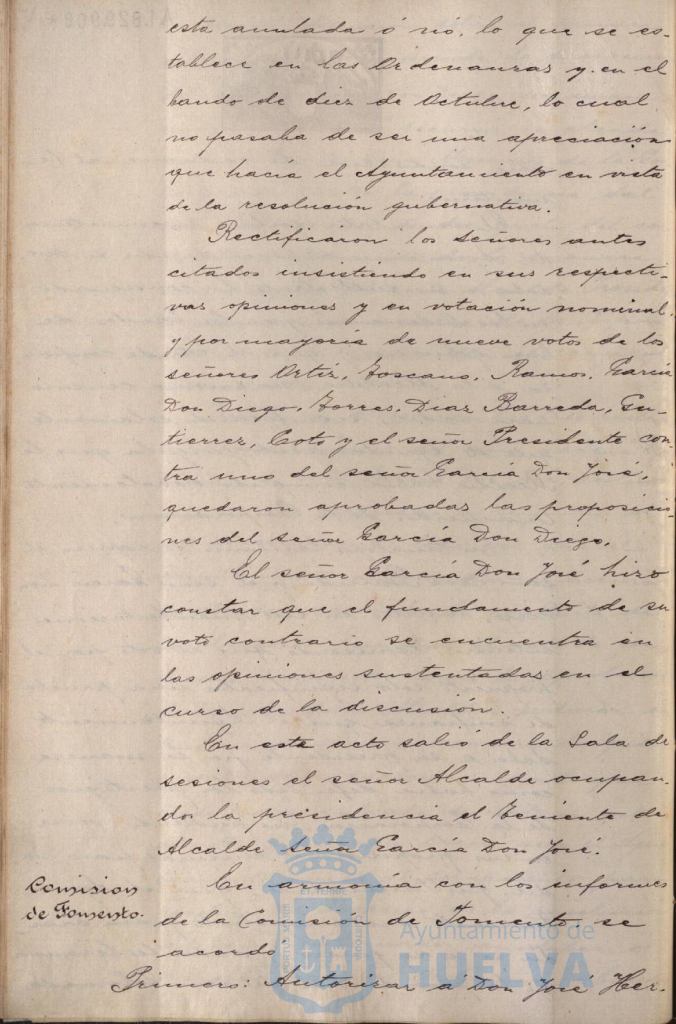 esta anulada ó nó, lo que se es-
tablece en las Ordenanzas y en el
bando de diez de Octubre, lo cual
no pasaba de ser una apreciación
que hacía el Ayuntamiento en vista
de la resolución gubernativa.
Rectificaron los señores antes
citados insistiendo en sus respecti-
vas opiniones y en votación nominal
y por mayoría de nueve votos de los
señores Ortíz, Toscano, Ramos, García
Don Diego, Torres, Diaz Barreda, Gu-
tierrez, Coto y el señor Presidente con-
tra uno del señor García Don José,
quedaron aprobadas las proposicio-
nes del señor García Don Diego.
El señor García Don José hizo
constar que el fundamento de su
voto contrario se encuentra en
las opiniones sustentadas en el
curso de la discusión.
En este acto salió de la Sala de
sesiones el señor Alcalde ocupan-
do la presidencia el Teniente de
Alcalde señor García Don José.
Comision
de Fomento.
En armonía con los informes
de la Comisión de Fomento se
acordó
Primero: Autorizar á Don José Her-
Ayuntamiento de
HUELVA